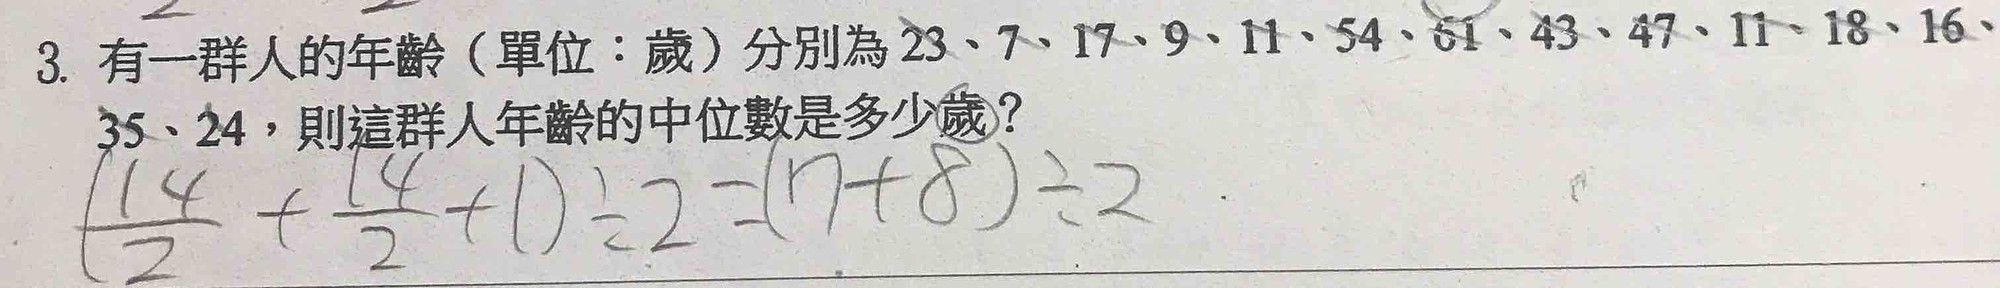 3. 有一群人的年齡（單位：歲）分別為 23、7、17、9、11、54、61、43、47、11、18、16、
35、24，則這群人年齡的中位數是多少歲？
(14/2 + 14/2 + 1) ÷ 2 = (7 + 8) ÷ 2